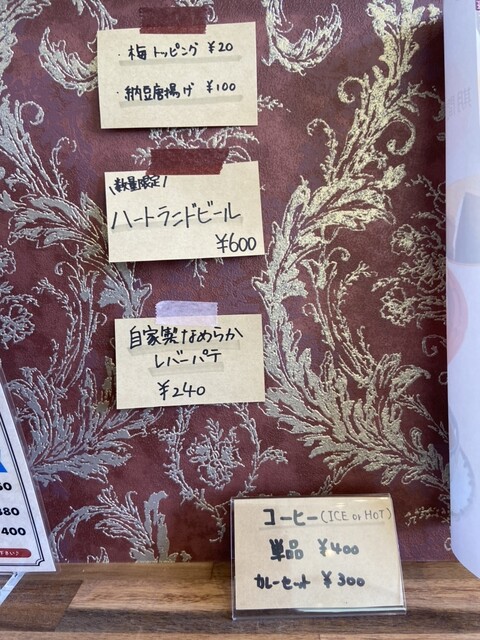 ・梅トッピング ¥20
・納豆唐揚げ ¥100
\数量限定/
ハートランドビール
¥600
自家製なめらか
レバーパテ
¥240
コーヒー(ICE or HOT)
単品 ¥400
カレーセット ¥300
50
480
400